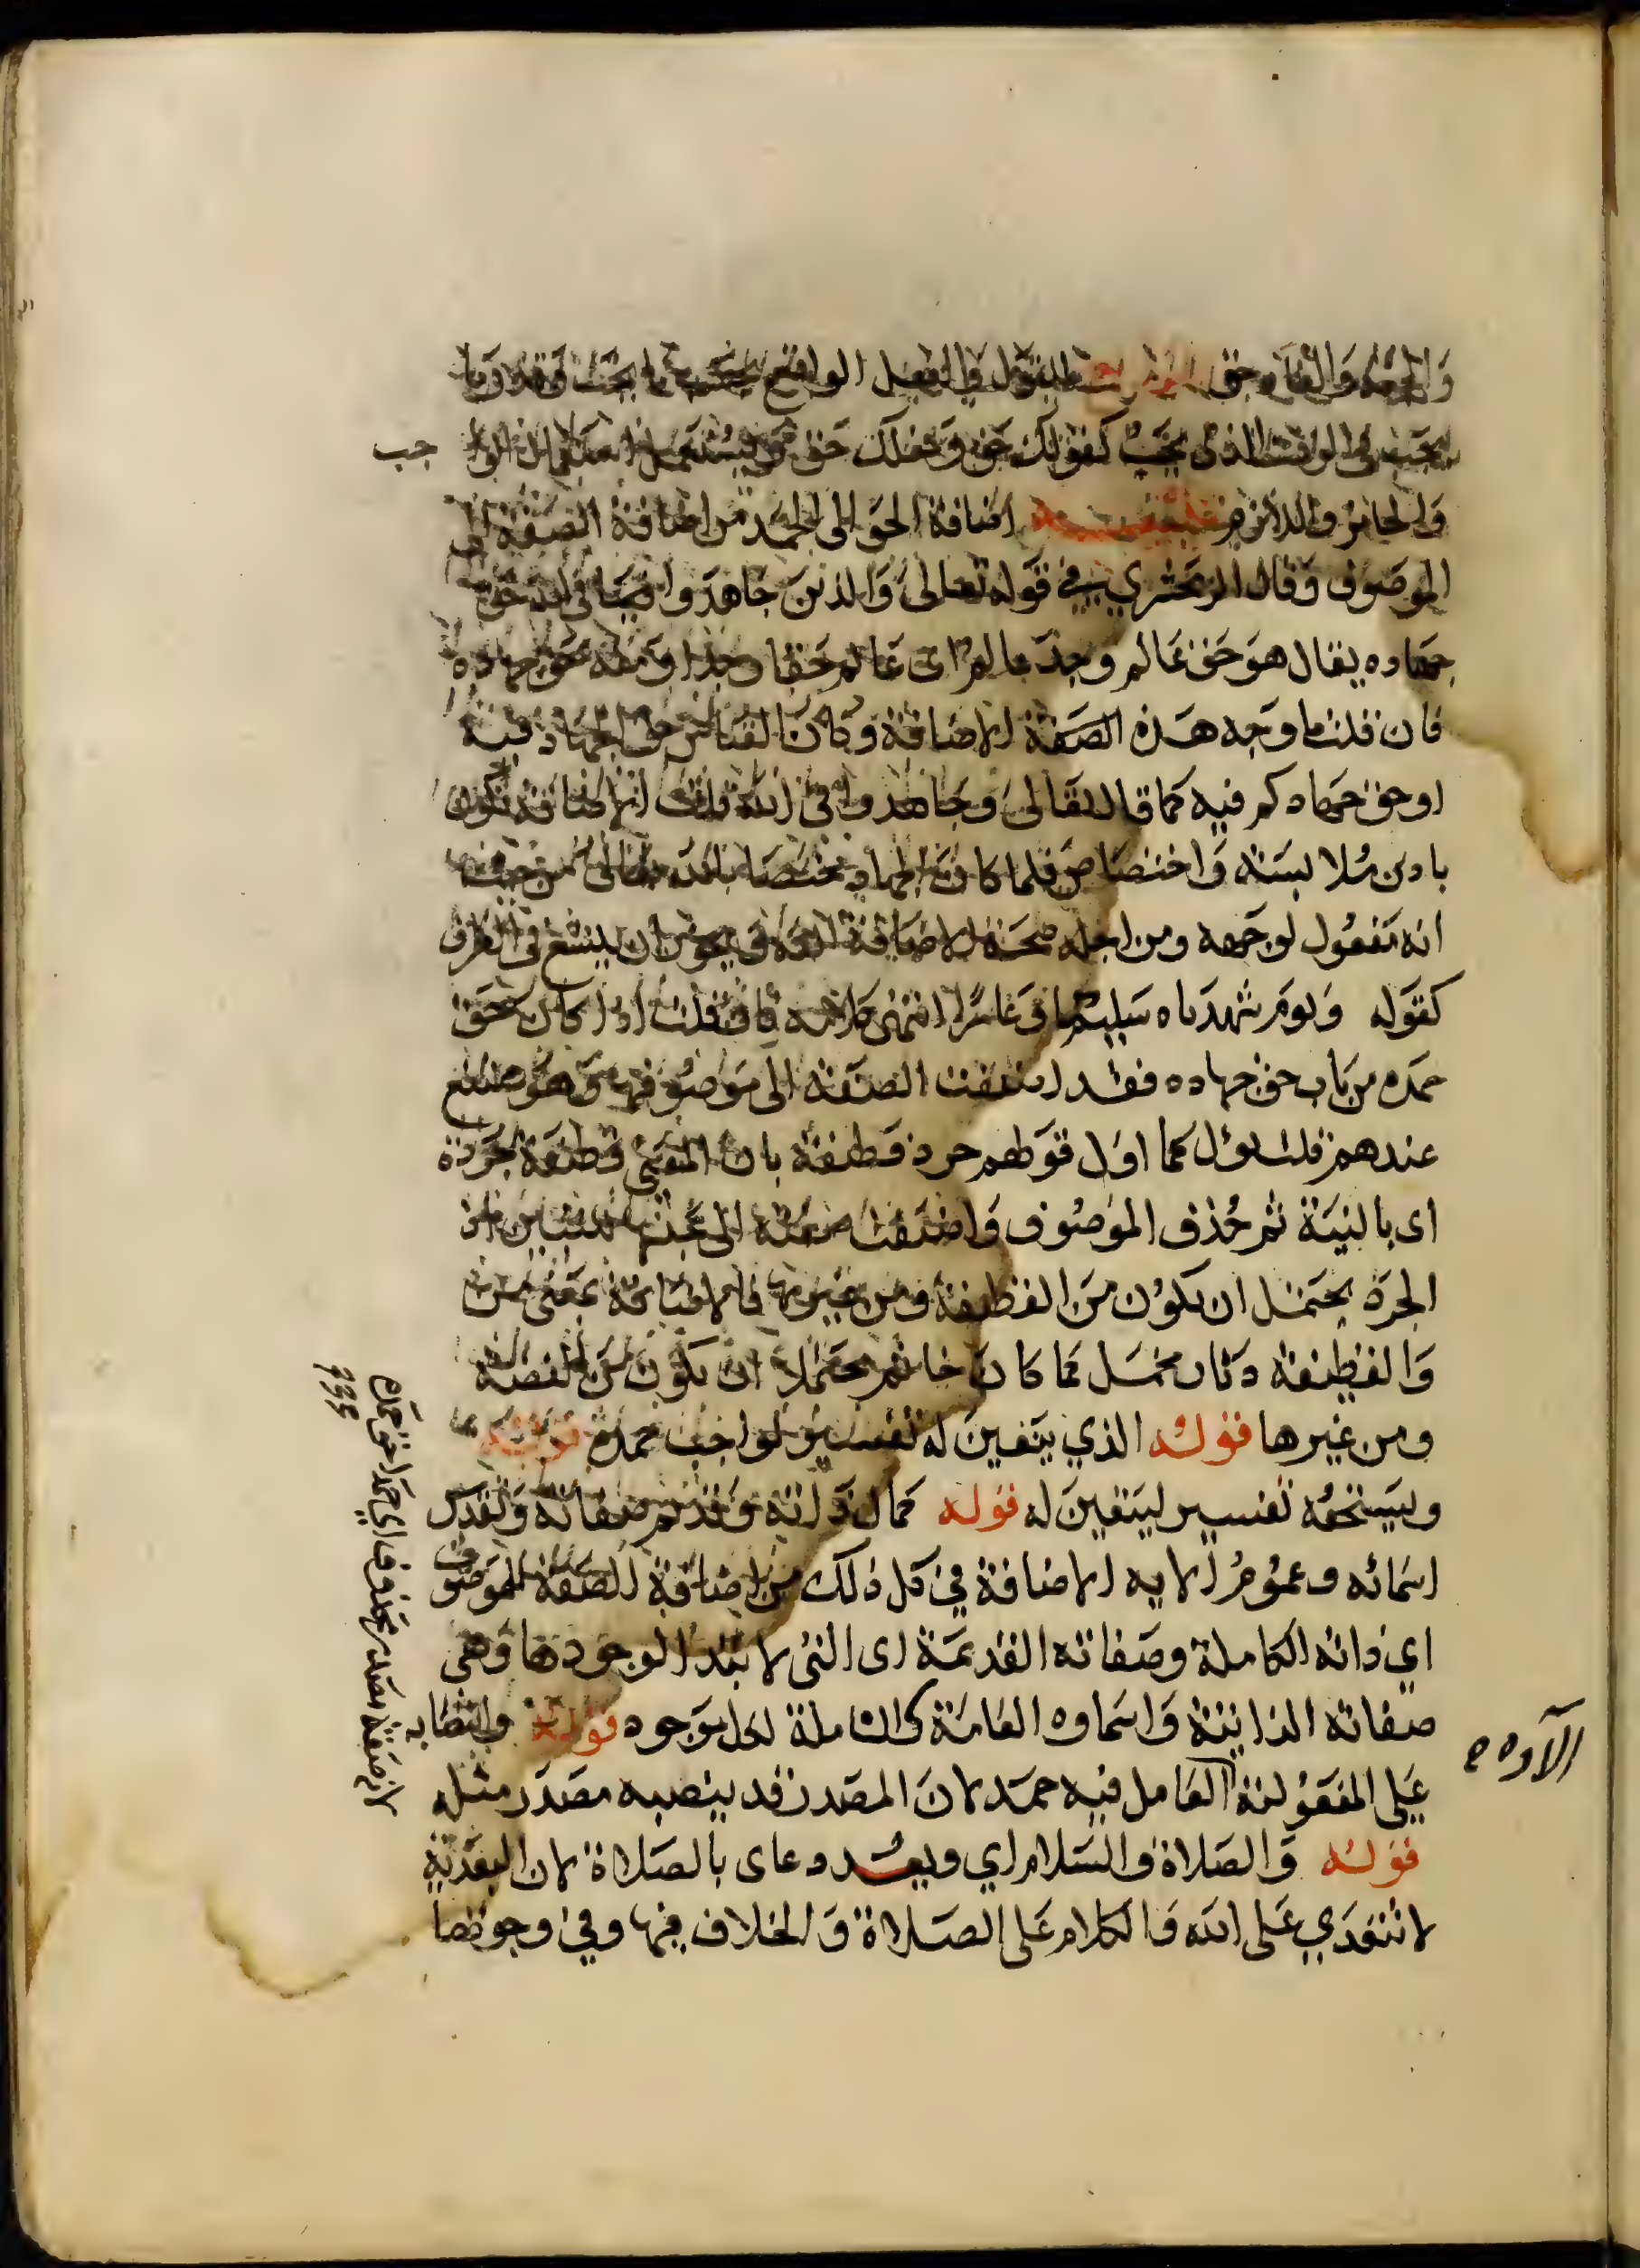 والجنة والنار حق الرابع يقال للفعل الواقع بحسب ما يجب وقدر ما
يجب في الوقت الذي يجب كقولك حق وفعلك حق ويستعمل استعمال الوا جب
والجائز واللازم تنبيه اضافة الحق الى الحمد من اضافة الصفة الى
الموصوف وقال الزمخشري في قوله تعالى وجاهدوا في الله حق
جهاده يقال هو حق عالم وجد عالم اى عالم حقا وجدا ومنه حق جهاده
فان قلت ما وجه هذه الصفة الاضافة وكان القياس حق الجهاد فيه
او حق جهادكم فيه كما قال تعالى وجاهدوا في الله قلت الاضافة تكون
بادنى ملابسة واختصاص فلما كان الجهاد مختصا بالله تعالى من حيث
انه مفعول لوجهه ومن اجله صحت الاضافة اليه ويجوز ان يتسع في الظرف
كقوله ويوم شهدناه سليما وعامرا انتهى كلامه فان قلت اذا كان حق
حمده من باب حق جهاده فقد اضيفت الصفة الى موصوفها وهو ممتنع
عندهم قلت يؤل كما اول قولهم جرد قطيفة بان المعنى قطيفة جردة
اى بالية ثم حذف الموصوف واضيفت صفته الى جنسها للتبيين اذ
الجردة يحتمل ان يكون من القطيفة ومن غيرها فالاضافة بمعنى من
والقطيفة دثار مخمل كما كان خاتم محتملا ان يكون من الفضة
ومن غيرها قوله الذي يتعين له تفسير لواجب حمده قوله
ويستحقه تفسير ليتعين له قوله كمال ذاته وقدم صفاته وتقدس
اسمائه وعموم الايه الاضافة في كل ذلك من اضافة الصفة للموصوف
اي ذاته الكاملة وصفاته القديمة اى التى لا ابتدا لوجودها وهي
صفاته الذاتية واسماوه العامة اى الشاملة لكل موجود قوله وانتصابه
على المفعولية العامل فيه حمد لان المصدر قد ينصبه مصدر مثله
قوله والصلاة والسلام اي وبعد دعاى بالصلاة لان البعدية
لا تتعدي على الله والكلام على الصلاة والخلاف فيها وفي وجوبها
الآوه ه
لانه صفة مصدر محذوف اي حمدا حق حمده